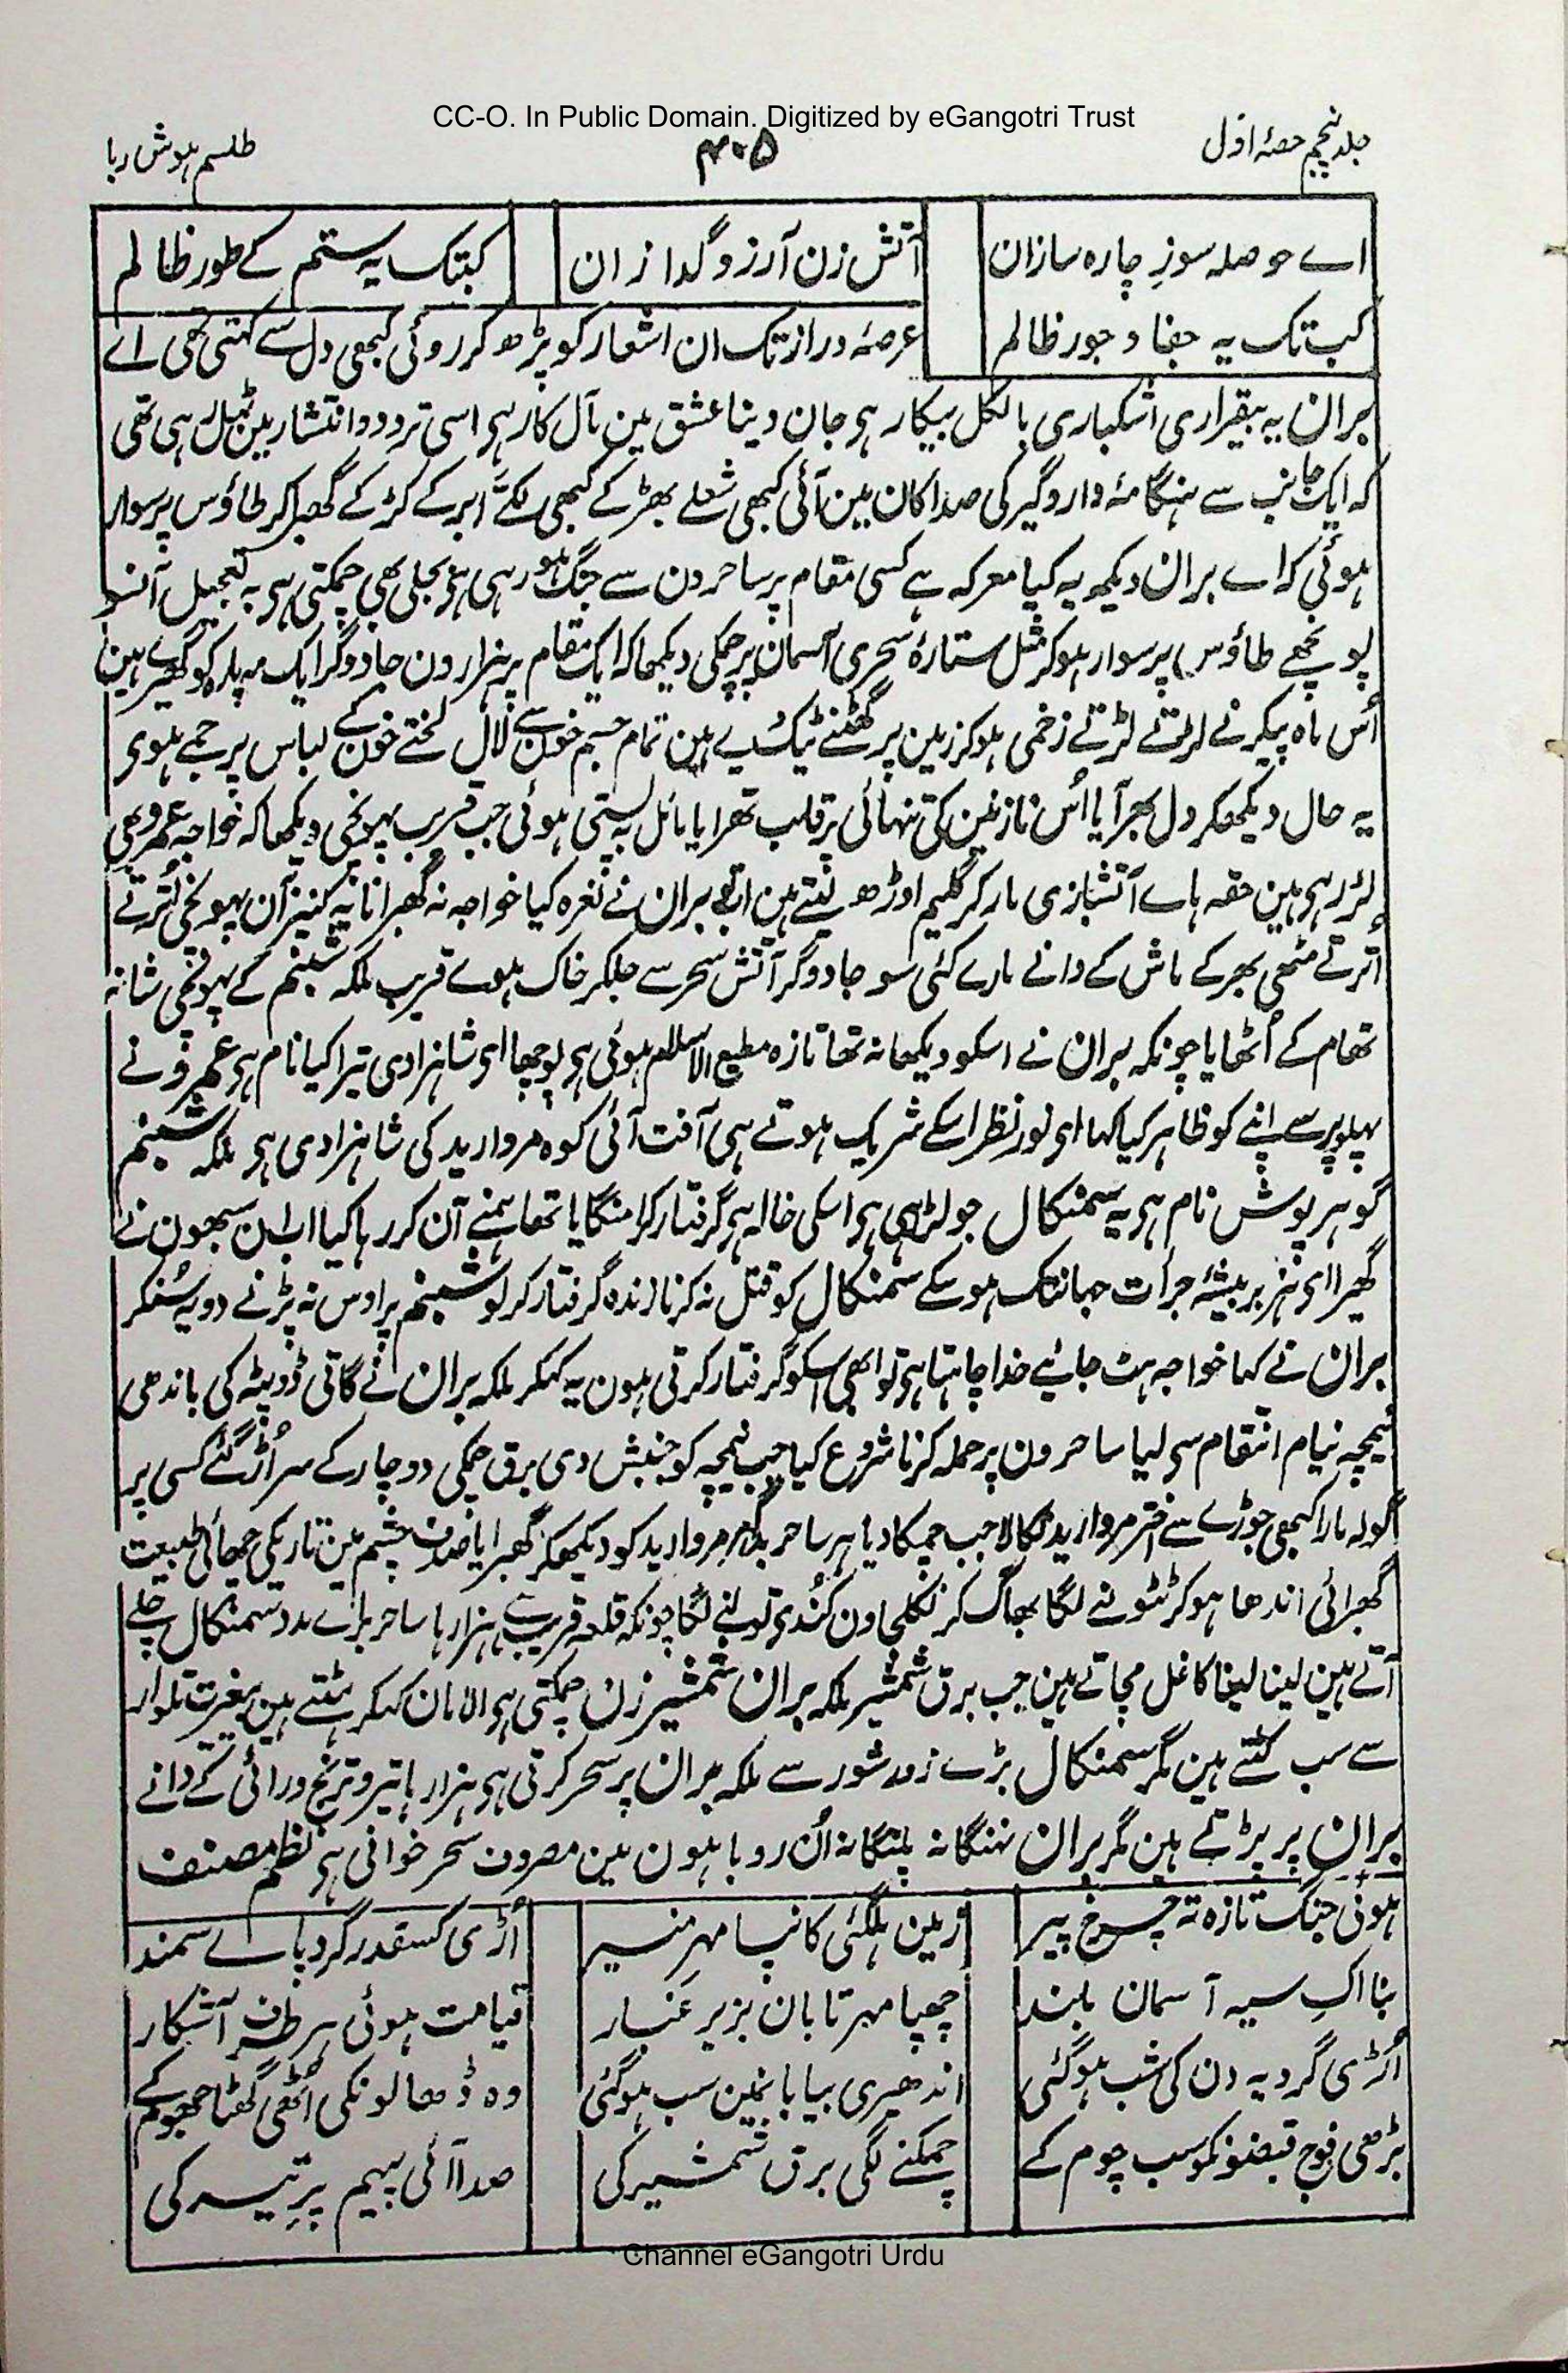 CC-O. In Public Domain. Digitized by eGangotri Trust
جلد پنجم حصۂ اول ۴۰۵ طلسم ہوش ربا
اے حوصلہ سوزِ چارہ سازان آتش زن آرزو گدازان کبتک یہ ستم کے طور ظالم
کب تک یہ جفا و جور ظالم عرصۂ دراز تک ان اشعار کو پڑھ کر روئی کبھی دل سے کہتی تھی اے
بران یہ بیقراری اشکباری بالکل بیکار ہی جان دینا عشق مین مآل کار ہی اسی تردد و انتشار مین ٹہل رہی تھی
کہ ایک جانب سے ہنگامۂ دار و گیر کی صدا کان مین آئی کبھی شعلے بھڑکے کبھی لکۂ ابر کے کڑکے گھبرا کر طاؤس پر سوار
ہوئی کہ اے بران دیکھ یہ کیا معرکہ ہے کسی مقام پر ساحرون سے جنگ ہو رہی ہی بجلی بھی چمکتی ہی بہ تعجیل آنسو
پونچھے طاؤس پر سوار ہوکر مثل ستارۂ سحری آسمان پر چمکی دیکھا کہ ایک مقام پر ہزارون جادوگر ایک مہ پارہ کو گھیرے ہین
اُس ماہ پیکر نے لڑتے لڑتے زخمی ہوکر زمین پر گھٹنے ٹیک دیے ہین تمام جسم خون سے لال لختے خون کے لباس پر جمے ہوی
یہ حال دیکھکر دل بھر آیا اُس نازنین کی تنہائی پر قلب تھرایا مائل بہ پستی ہوئی جب قریب پہونچی دیکھا کہ خواجہ عمرو بھی
لڑ رہی ہین حقہ ہاے آتشبازی مار کر گلیم اوڑھ لیتے ہین اب بران نے نعرہ کیا خواجہ نہ گھبرانا یہ کنیز آن پہونچی اُترتے
اُترتے مٹھی بھر کے ماش کے دانے مارے کئی سو جادوگر آتش سحر سے جلکر خاک ہوے قریب ملکہ شبنم کے پہونچی شانہ
تھام کے اُٹھایا چونکہ بران نے اسکو دیکھا نہ تھا تازہ مطیع الاسلام ہوئی ہی پوچھا ای شاہزادی تیرا کیا نام ہی عمرو نے
پہلو پر سے اپنے کو ظاہر کیا کہا ای نور نظر اسکے شریک ہوتے ہی آفت آئی کوہ مروارید کی شاہزادی ہی ملکہ شبنم
گوہر پوش نام ہی یہ سمنکال جو لڑ رہی ہی اسکی خالہ ہی گرفتار کرا منگایا تھا ہمنے آن کر رہا کیا اب ان سبھون نے
گھیرا ای ہزبر بیشۂ جرأت جہانتک ہو سکے سمنکال کو قتل نہ کرنا زندہ گرفتار کر لو شبنم پر اوس نہ پڑنے دو یہ سُنکر
بران نے کہا خواجہ ہٹ جائیے خدا چاہتا ہی تو ابھی اسکو گرفتار کرتی ہون یہ کہکر ملکہ بران نے گاتی ڈوپٹہ کی باندھی
نیمچہ نیام انتقام سی لیا ساحرون پر حملہ کرنا شروع کیا جب نیمچہ کو جنبش دی برق چمکی دو چار کے سر اُڑ گئے کسی پر
گولہ مارا کبھی جوڑے سے اختر مروارید نکالا جب چمکا دیا ہر ساحر بدگہر مروارید کو دیکھکر گھبرایا صدف چشم مین تاریکی چھائی طبیعت
گھبرائی اندھا ہوکر ٹٹولنے لگا بھاگ کر نکلی اون کُندی تولنے لگا چونکہ قلعہ قریب ہی ہزارہا ساحر براے مدد سمنکال چلے
آتے ہین لینا لینا کا غل مچاتے ہین جب برق شمشیر ملکہ بران شمشیر زن چمکتی ہی الامان کہکر ہٹتے ہین بیغیرت تلوار
سے سب کٹتے ہین مگر سمنکال بڑے زور شور سے ملکہ بران پر سحر کرتی ہی ہزارہا تیر و ترنج و رائی کے دانے
بران پر پڑتے ہین مگر بران نہنگانہ پلنگانہ اُن روباہون مین مصروف سحر خوانی ہی نظم مصنف
ہوئی جنگ تازہ تہ چرخ پیر زمین ہلگئی کانپا مہر منیر اُڑی کسقدر گرد پاے سمند
بنا اک سیہ آسمان بلند چھپا مہر تابان بزیر غبار قیامت ہوئی ہر طرف آشکار
اُڑی گرد یہ دن کی شب ہوگئی اندھیری بیابانمین سب ہوگئی وہ ڈھالونکی اُٹھی گھٹا جھومکے
بڑھی فوج قبضونکو سب چوم کے چمکنے لگی برق شمشیر کی صدا آئی پیہم پرِ تیر کی
Channel eGangotri Urdu